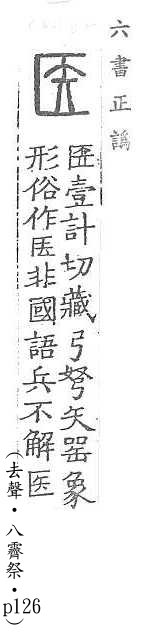 六書正譌
医
医壹計切藏弓弩矢器象
形俗作医非國語兵不解医
(去聲・八霽祭・p126)